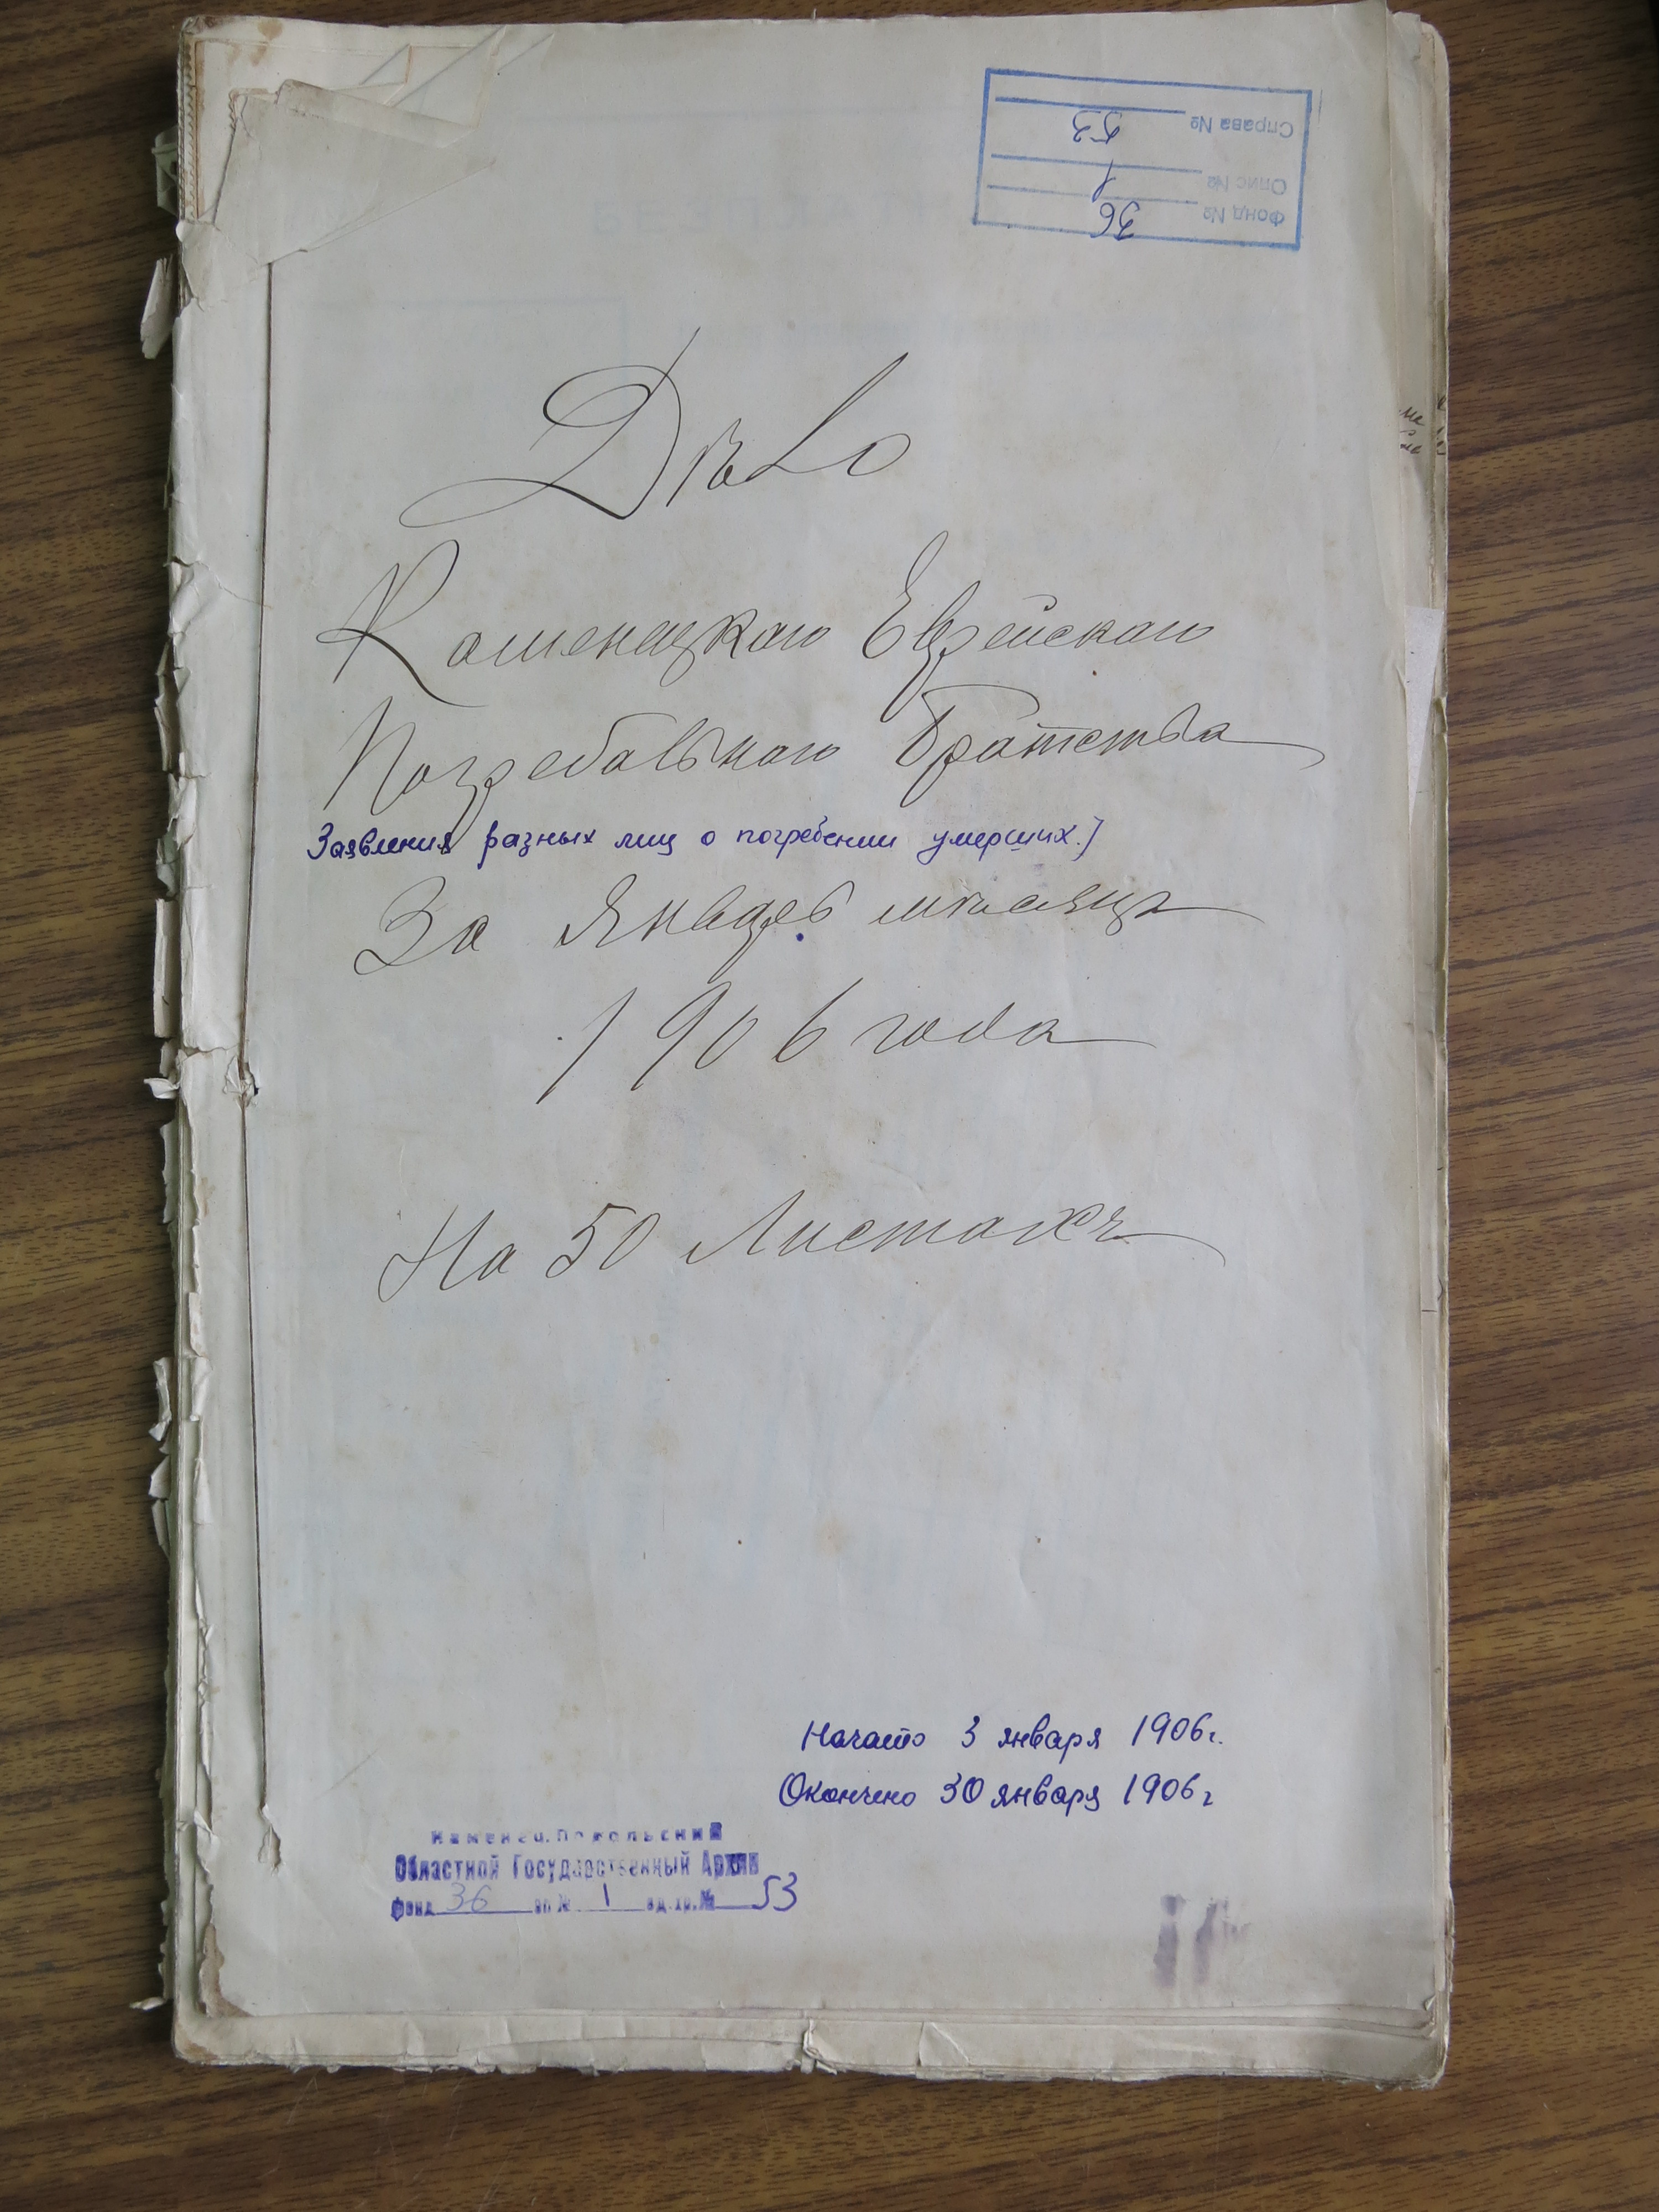 Справа № 53
Опис № 1
Фонд № 36
Дѣло
Каменецкаго Еврейскаго
Погребальнаго Братства
Заявления разных лиц о погребении умерших.]
За Январь мѣсяцъ
1906 года
На 50 Листахъ
Начато 3 января 1906 г.
Окончено 30 января 1906 г
Каменец-Подольский
Областной Государственный Архив
фонд 36 оп № 1 ед. хр. № 53